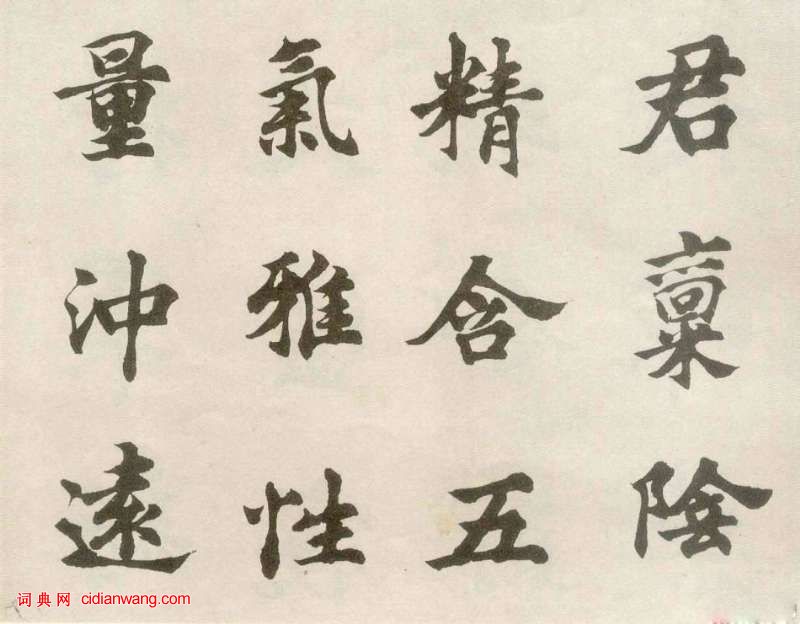 君稟陰
精含五
氣雅性
量沖遠
词典网 cidianwang.com